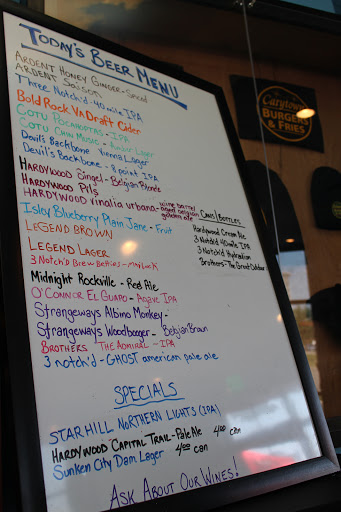 TODAY'S BEER MENU
ARDENT HONEY GINGER - Saison
ARDENT SAISON
Three Notch'd - 40 mile IPA
Bold Rock Va Draft Cider
COTU POCAHOPTAS - IPA
COTU CHIN MUSIC - Amber Lager
Devils Backbone Vienna Lager
Devil's Backbone - 8 point IPA
HARDYWOOD Singel - Belgian Blonde
HARDYWOOD Pils
HARDYWOOD vinalia urbana - wine barrel aged belgian golden ale
Isley Blueberry Plain Jane - Fruit
LEGEND BROWN
LEGEND LAGER
3 Notch'd Brew Betties - Maibock
Midnight Rockville - Red Ale
O'CONNOR EL GUAPO - Agave IPA
Strangeways Albino Monkey -
Strangeways Woodbooger - Belgian Brown
BROTHERS THE ADMIRAL - IPA
3 notch'd - GHOST american pale ale
CANS | BOTTLES
Hardywood Cream Ale
3 Notch'd 40 mile IPA
3 Notch'd Hydration
Brothers - The Great Outdoors
SPECIALS
STARHILL NORTHERN LIGHTS (IPA)
HARDYWOOD CAPITAL TRAIL - Pale Ale 4.00 can
Sunken City Dam Lager 4.00 can
ASK ABOUT OUR WINES!
Carytown
BURGERS
& FRIES